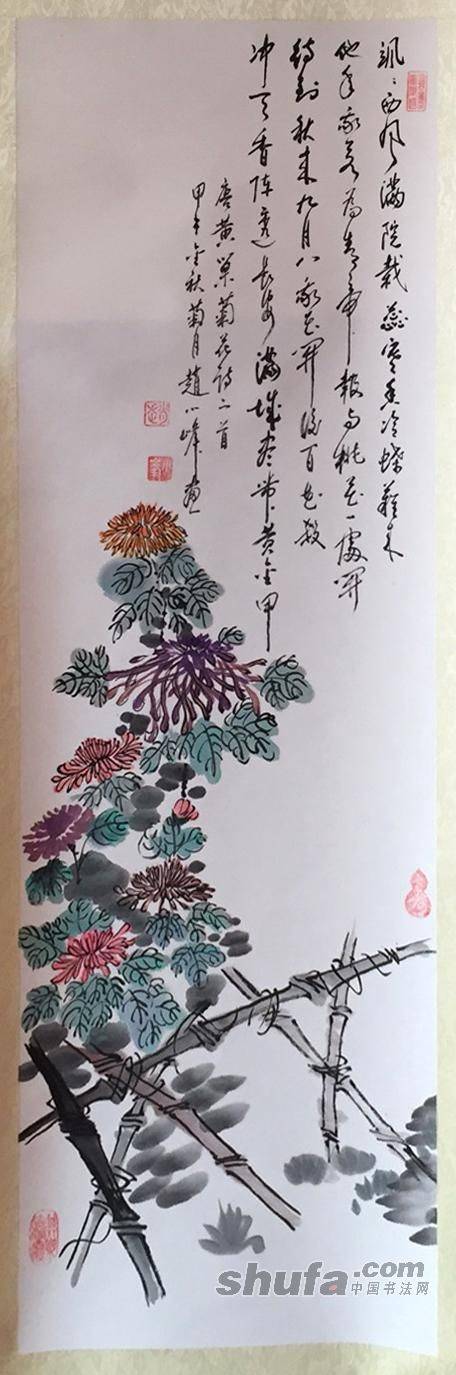 飒〻西风满院栽蕊寒香冷蝶難来
他年我若为青帝報与桃花一處開
待到秋来九月八我花開後百花殺
冲天香阵透长安满城尽带黄金甲
唐黄巢菊花诗二首
甲午金秋菊月趙小峰画
shufa.com
中国书法网